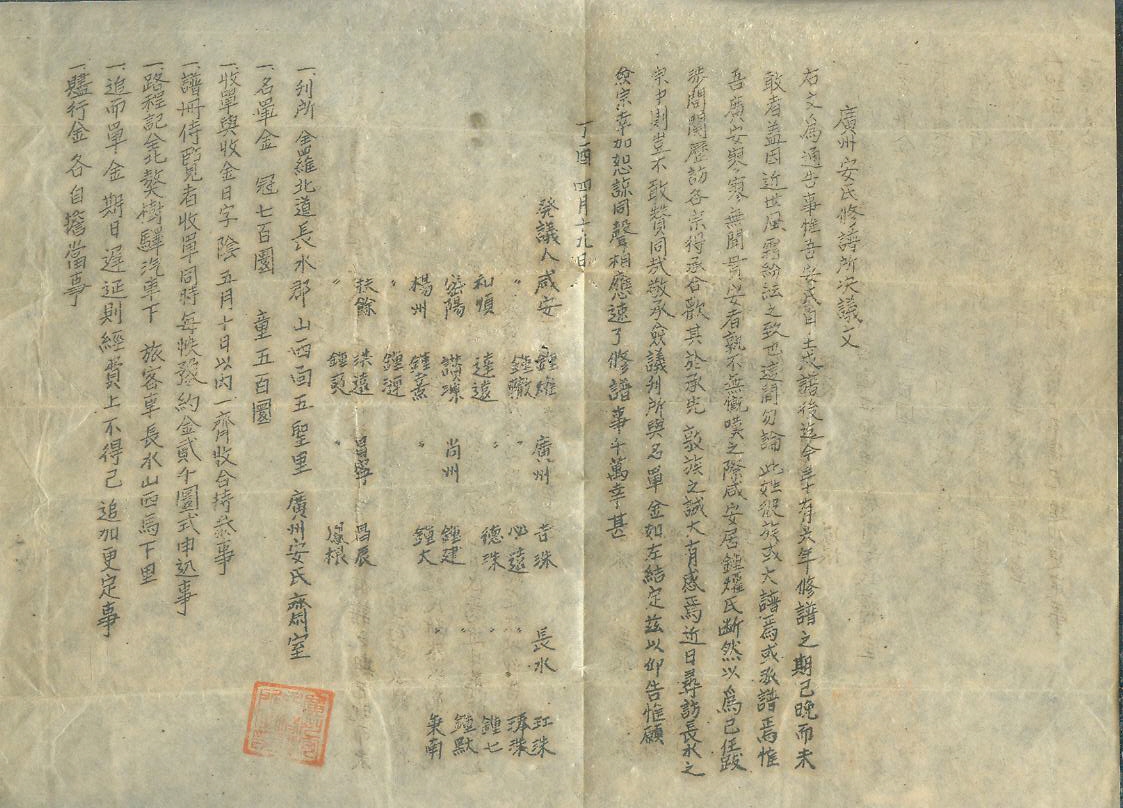 廣州安氏修譜所決議文
右文爲通告事惟吾安氏自壬戌譜後迄今三十有六年修譜之期已晩而未
敢者盖因近世風霜紛紜之致也這間勿論此姓彼族或大譜焉或派譜焉惟
吾廣安寥寥無聞
之際咸安居鍾燿氏斷然以爲己任跋
涉間關歷訪各宗得承合歡其於承先敦族之誠大有感焉近日尋訪長水之
宗中則豈不敢贊同哉敬承僉議刋所與名單金如左結定玆以仰告惟願
僉宗幸加恕諒同聲相應速了修譜事千萬幸甚
丁酉四月十九日
發議人 咸安 鍾燿 廣州 吉珠 長水 玒珠
〃 鍾轍 〃 必遠 〃 珠
和順 達遠 〃 德珠 〃 鍾七
密陽 尚州 鍾建 〃 鍾默
楊州 鍾熹 〃 鍾大 〃 秉南
〃 鍾涇
扶餘 洪遠 昌寧 昌辰
〃 鍾奭 〃 根
一、刋所 全羅北道長水郡山西面五聖里 廣州安氏齋室
一、名單金 冠七百圜 童五百圜
一、收單與收金日字陰五月十日以內一齊收合持參事
一、譜冊侍覽者收單同時每帙發約金貳千圜式申込事
一、路程記全北獒樹驛汽車下 旅客車長水山西馬下里
一、追而單金期日遲延則經費上不得已追加更定事
一、贐行金各自擔當事